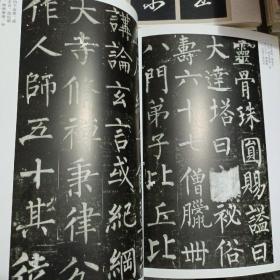 靈骨珠圓賜謚曰
大達塔曰祕俗
壽六十七僧臘卌
八門弟子比丘比
講論玄言或紀綱
大寺修禪秉律分
作人師五十其徒